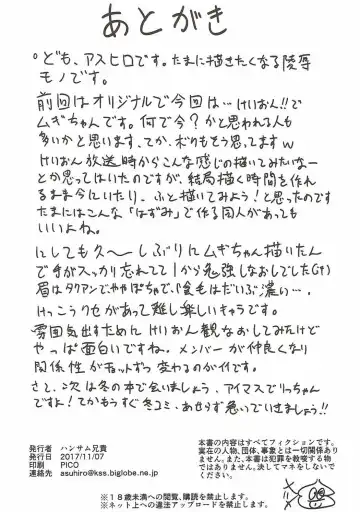 あとがき
ども、アスヒロです。たまに描きたくなる陵辱
モノです。
前回はオリジナルで今回は…けいおん!!で
ムギちゃんです。何で今?かと思われる人も
多いかと思います、てか、ボクもそう思ってますw
けいおん放送時からこんな感じの描いてみたいなー
とか思ってはいたのですが、結局描く時間を作れ
るまま今にいたり、ふと描いてみよう!と思ったのです
たまにはこんな「はずみ」で作る同人があっても
いいよね。
にしても久〜しぶりにムギちゃん描いたん
で手がスッカリ忘れてて1から勉強しなおしでした(汗)
眉はタクアンでややぽちゃで、毛はだいぶ濃い…。
けっこうクセがあって難し楽しいキャラです。
雰囲気出すためにけいおん観なおしてみたけど
やっぱ面白いですね。メンバーが仲良くなり
関係性が変わるのがイイです。
さて、次は冬の本で会いましょう、アイマスでりっちゃん
ですよ!てかもうすぐ冬コミ、あせらず急いでいきましょう!!
発行者 ハンサム兄貴
発行日 2017/11/07
印刷 PICO
連絡先 asuhiro@kss.biglobe.ne.jp
本書の内容はすべてフィクションです。
実在の人物、団体、事象とは一切関係あり
ません。また、本書は犯罪を教唆する物
ではありません。決してマネをしないで
ください。
※18歳未満への閲覧、購読を禁止します。
※ネット上への違法アップロードを禁止します。